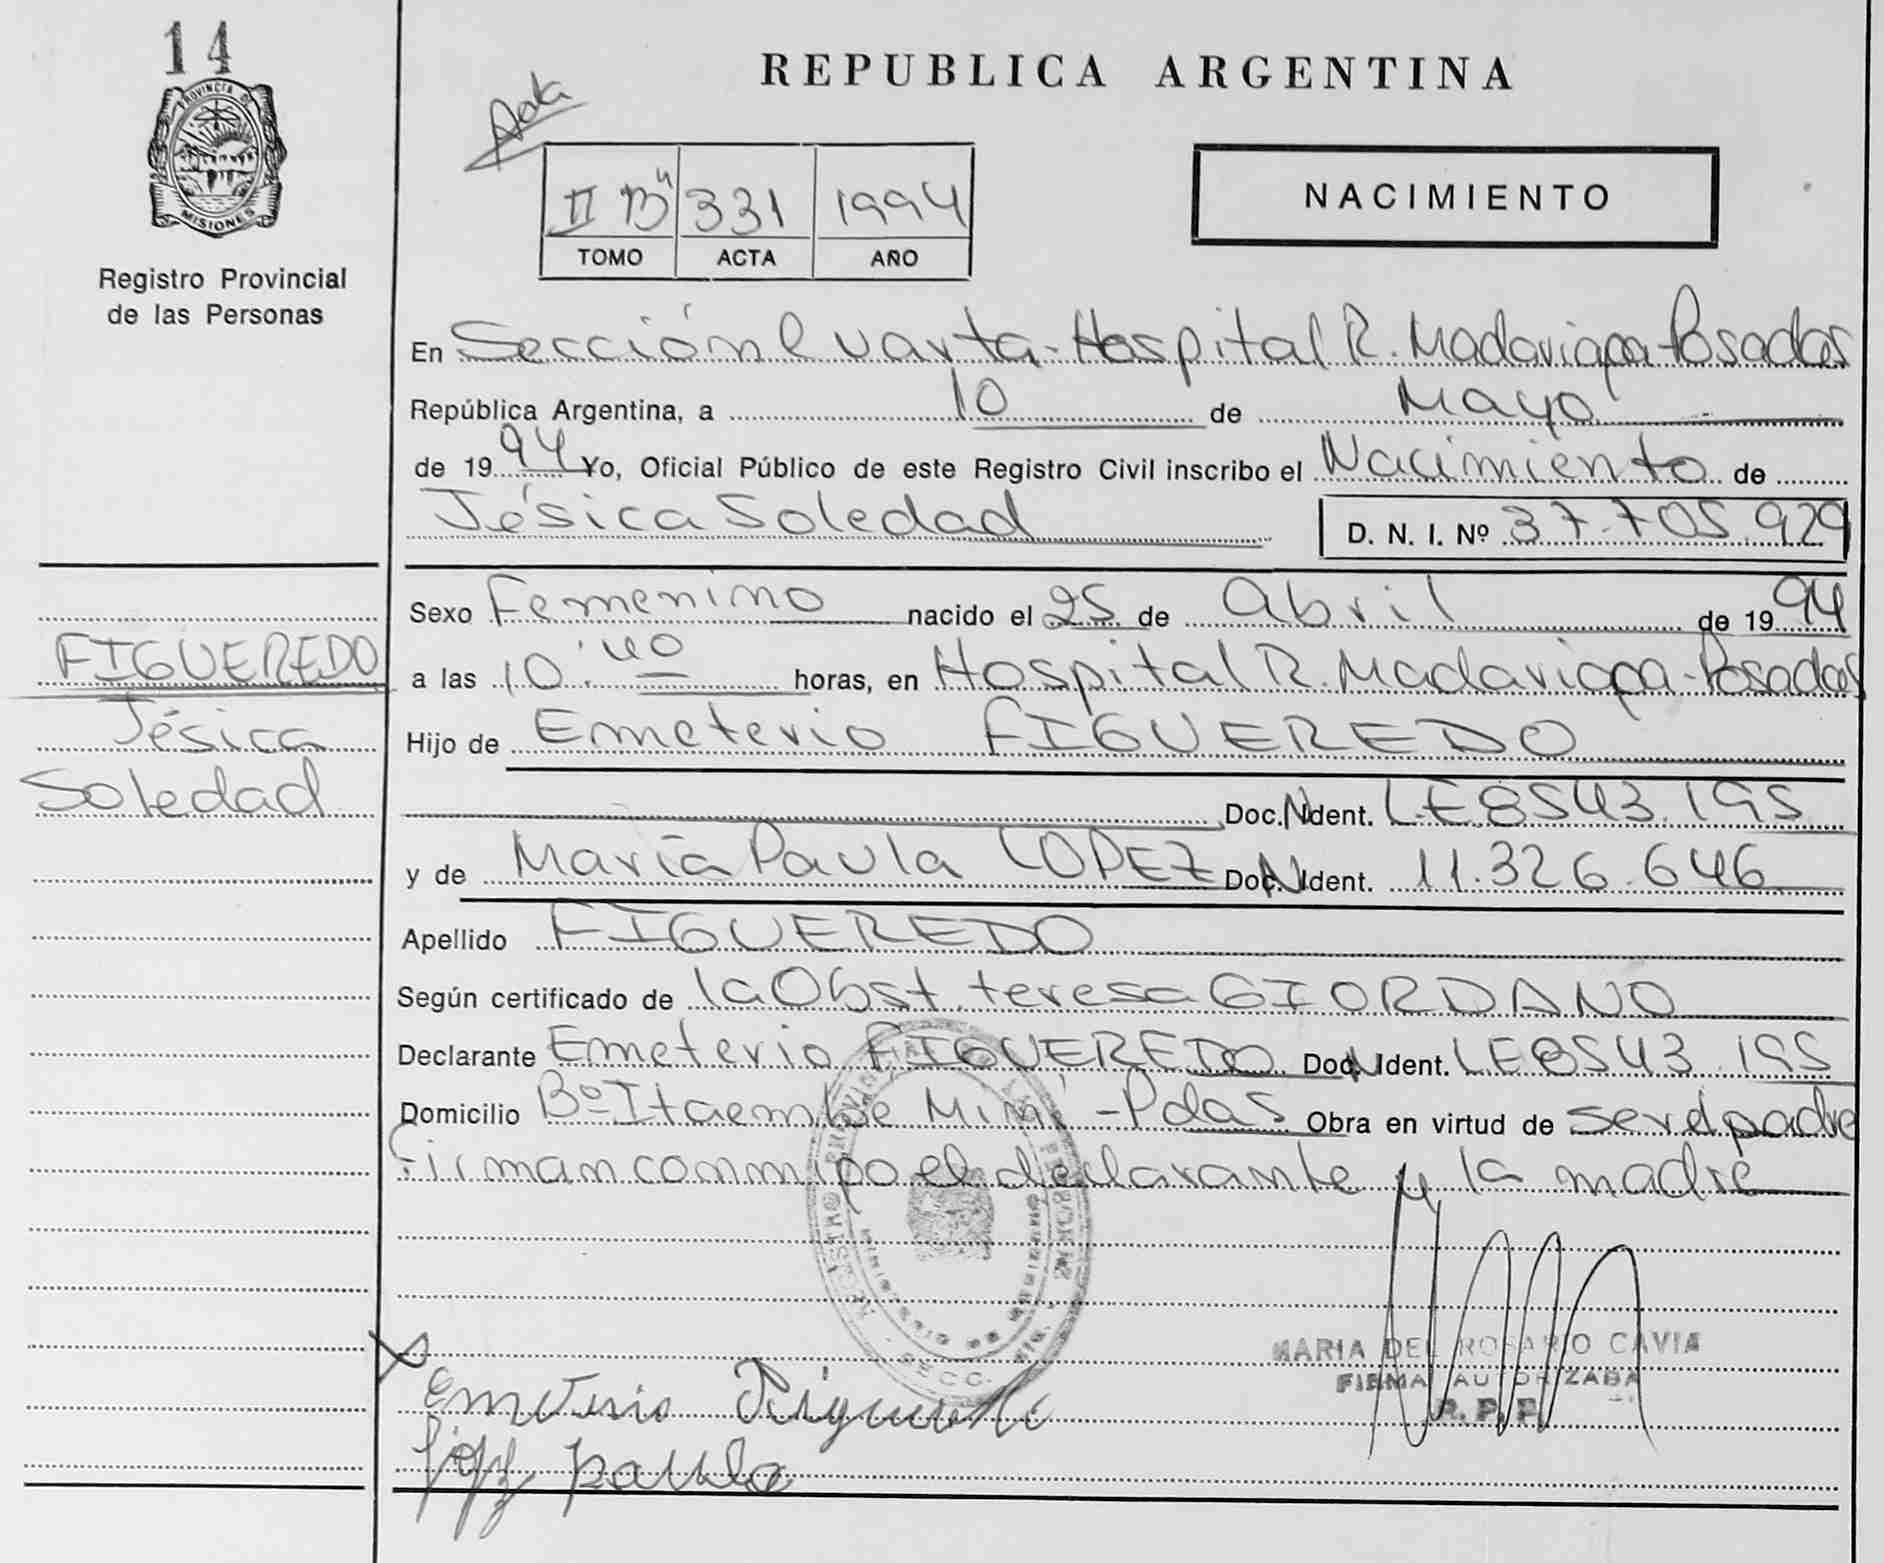 14
PROVINCIA DE
MISIONES
Registro Provincial
de las Personas
REPUBLICA ARGENTINA
II "B" 331 1994
TOMO ACTA AÑO
NACIMIENTO
En Sección Cuarta - Hospital R. Madariaga - Posadas
República Argentina, a 10 de Mayo
de 1994 Yo, Oficial Público de este Registro Civil inscribo el Nacimiento de
Jésica Soledad D. N. I. Nº 37.705.929
Sexo Femenino nacido el 25 de Abril de 1994
a las 10:40 horas, en Hospital R. Madariaga - Posadas
Hijo de Emeterio FIGUEREDO
Doc. N Ident. LE 8543.195
y de María Paula LOPEZ Doc. N Ident. 11.326.646
Apellido FIGUEREDO
Según certificado de la Obst. teresa GIORDANO
Declarante Emeterio FIGUEREDO Doc. N Ident. LE 8543.195
Domicilio Bº Itaembe Miní - Pdas Obra en virtud de ser el padre
Firman conmigo el declarante y la madre
FIGUEREDO
Jésica
Soledad
REGISTRO PROVINCIAL DE LAS PERSONAS
SECC.
MARIA DEL ROSARIO CAVIA
FIRMA AUTORIZADA
R. P. P.
Emeterio Figueredo
López Paula